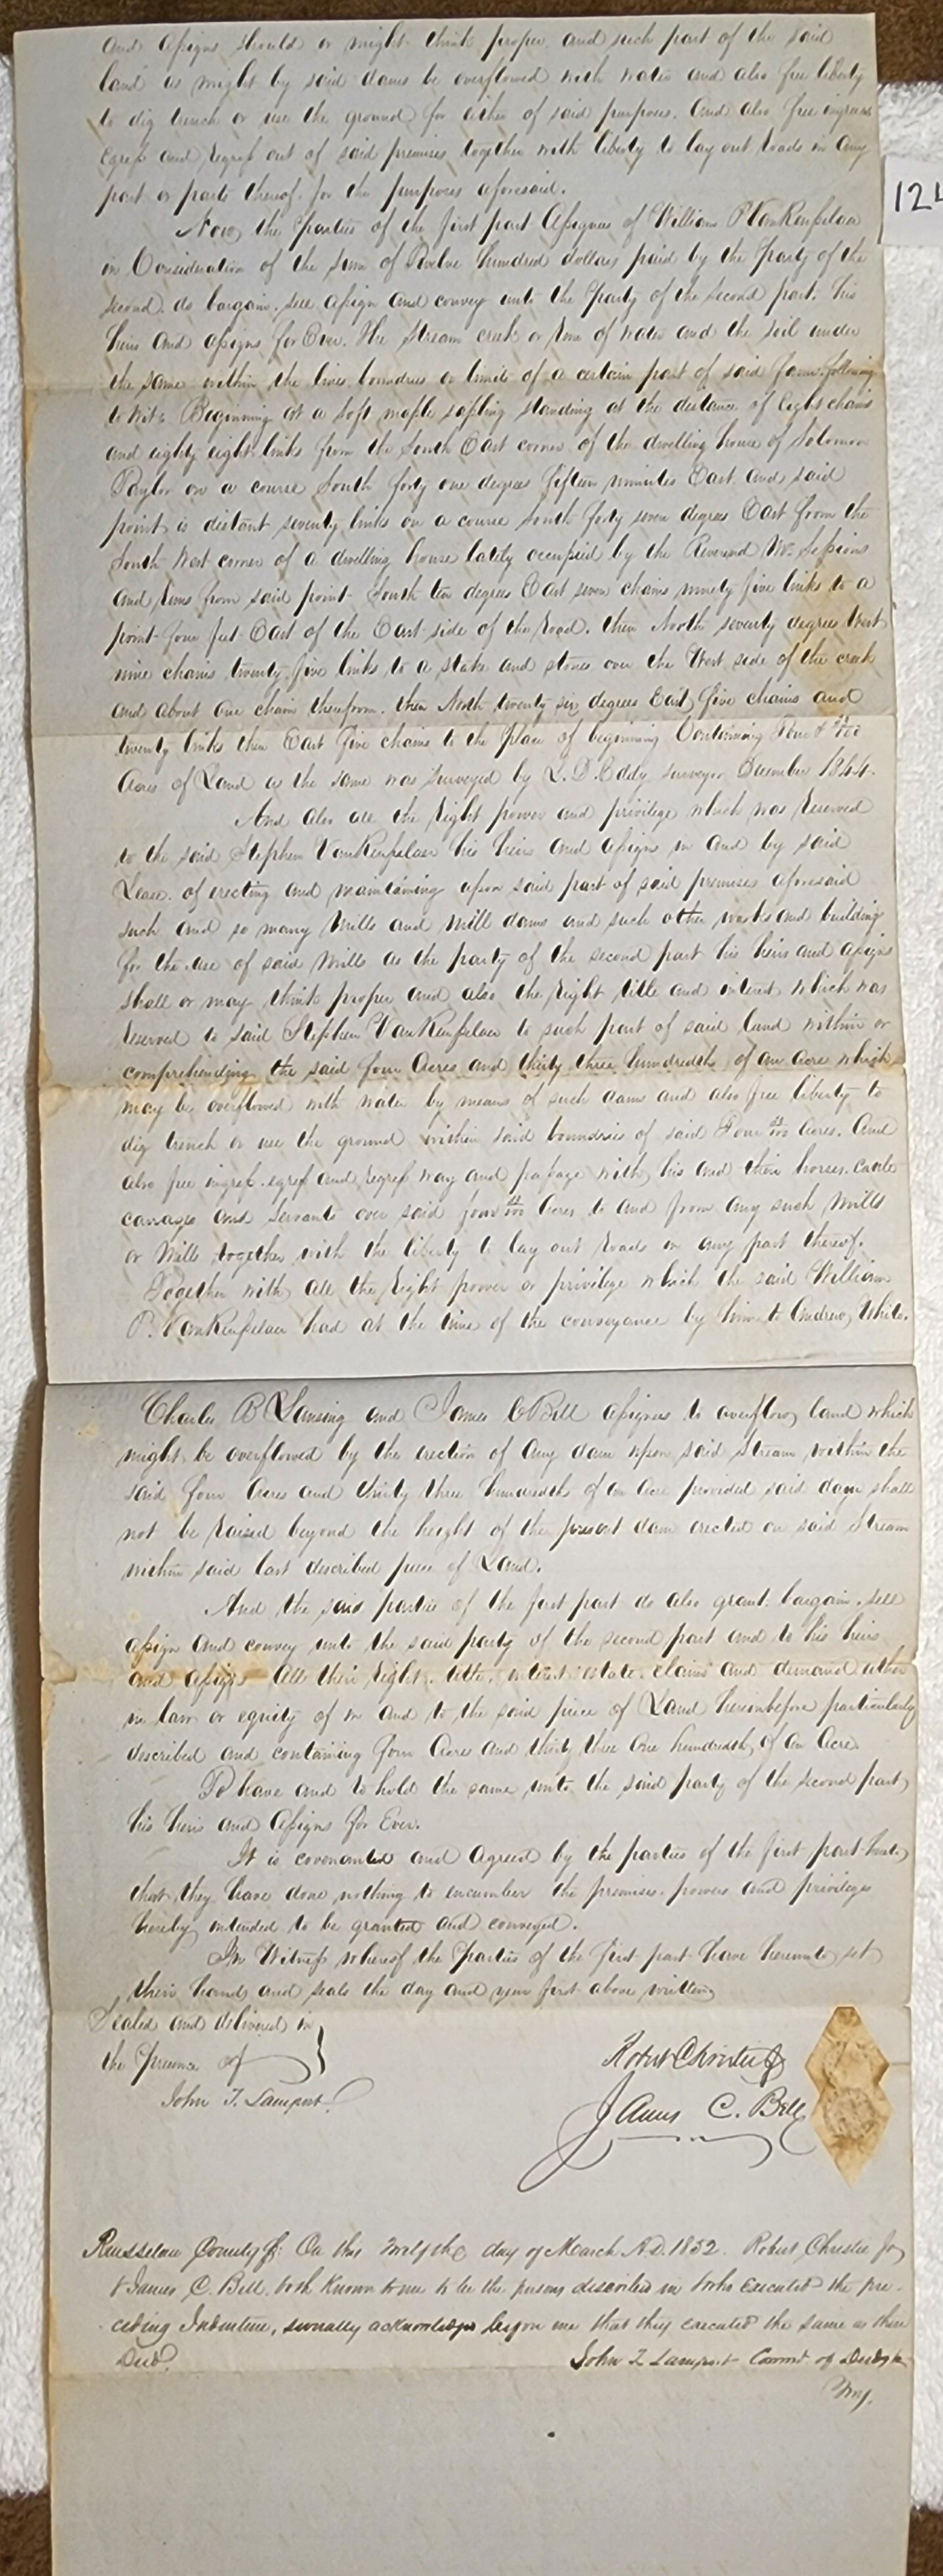 and assigns should or might think proper and such part of the said
land as might by said dams be overflowed with water and also free liberty
to dig trench or use the ground for either of said purposes. And also free ingress
egress and regress out of said premises together with liberty to lay out roads in any
part or parts thereof for the purposes aforesaid.
124
Now, the Parties of the first part Assignees of William P VanRensselaer
in Consideration of the sum of Twelve hundred dollars paid by the Party of the
second. do bargain. sell assign and convey unto the Party of the second part. his
heirs and assigns for Ever. The stream creek or run of water and the soil under
the same within the lines boundries or limits of a certain part of said farm following
to wit: Beginning at a soft maple sapling standing at the distance of Eight chains
and eighty eight links from the South East corner of the dwelling house of Solomon
Taylor on a course South forty one degrees fifteen minutes East and said
point is distant seventy links on a course South forty seven degrees East from the
South West corner of a dwelling house lately occupied by the Reverend Mr. Sessions
and runs from said point South ten degrees East seven chains ninety five links to a
point four feet East of the East side of the road. then North seventy degrees West
nine chains twenty five links to a stake and stones over the West side of the creek
and about one chain therefrom. then North twenty six degrees East, five chains and
twenty links then East five chains to the place of beginning Containing Four 33/100
Acres of Land as the same was surveyed by L. D. Eddy surveyor December 1844.
And also all the right power and privilege which was reserved
to the said Stephen VanRensselaer his heirs and assigns in and by said
Lease. of erecting and maintaining upon said part of said premises aforesaid
such and so many Mills and Mill dams and such other works and building
for the use of said Mills as the party of the second part his heirs and assigns
shall or may think proper and also the right title and interest which was
reserved to said Stephen VanRensselaer to such part of said land within or
comprehending the said four Acres and thirty three hundredths of an Acre which
may be overflowed with water by means of such dams and also free liberty to
dig trench or use the ground within said boundries of said Four 33/100 Acres. And
also free ingress. egress and regress way and passage with his and their horses. cattle
carrages and servants over said four 33/100 Acres to and from any such Mills
or Mills together with the liberty to lay out roads in any part thereof.
Together with all the right power or privilege which the said William
P. VanRensselaer had at the time of the conveyance by him to Andrew White.
Charles B Lansing and James C Bell assignees to overflow land which
might be overflowed by the erection of any dam upon said stream within the
said four Acres and thirty three hundredths of an Acre provided said dam shall
not be raised beyond the height of the present dam erected on said stream
within said last described piece of Land.
And the said parties of the first part do also grant. bargain. sell
assign and convey unto the said party of the second part and to his heirs
and assigns all their right. title. interest estate. claim and demand either
in law or equity of in and to the said piece of Land hereinbefore particularly
described and containing four Acres and thirty three one hundredth, of an Acre.
To have and to hold the same unto the said party of the second part,
his heirs and Assigns for Ever.
It is covenanted and Agreed by the parties of the first part hereto,
that, they have done nothing to encumber the premises. powers and privileges
hereby intended to be granted and conveyed.
In Witness whereof the Parties of the first part have hereunto set
their hand and seals the day and year first above written
Sealed and delivered in
the Presence of
John T. Lamport
Robert Christie Jr
James C. Bell
Rensselaer County ss: On this twelfth day of March A.D. 1852. Robert Christie Jr
& James C. Bell. both known to me to be the persons described in & who executed the pre-
ceding Indenture, severally acknowledged before me that they executed the same as their
Deed.
John T Lamport Commr of Deeds
Troy.